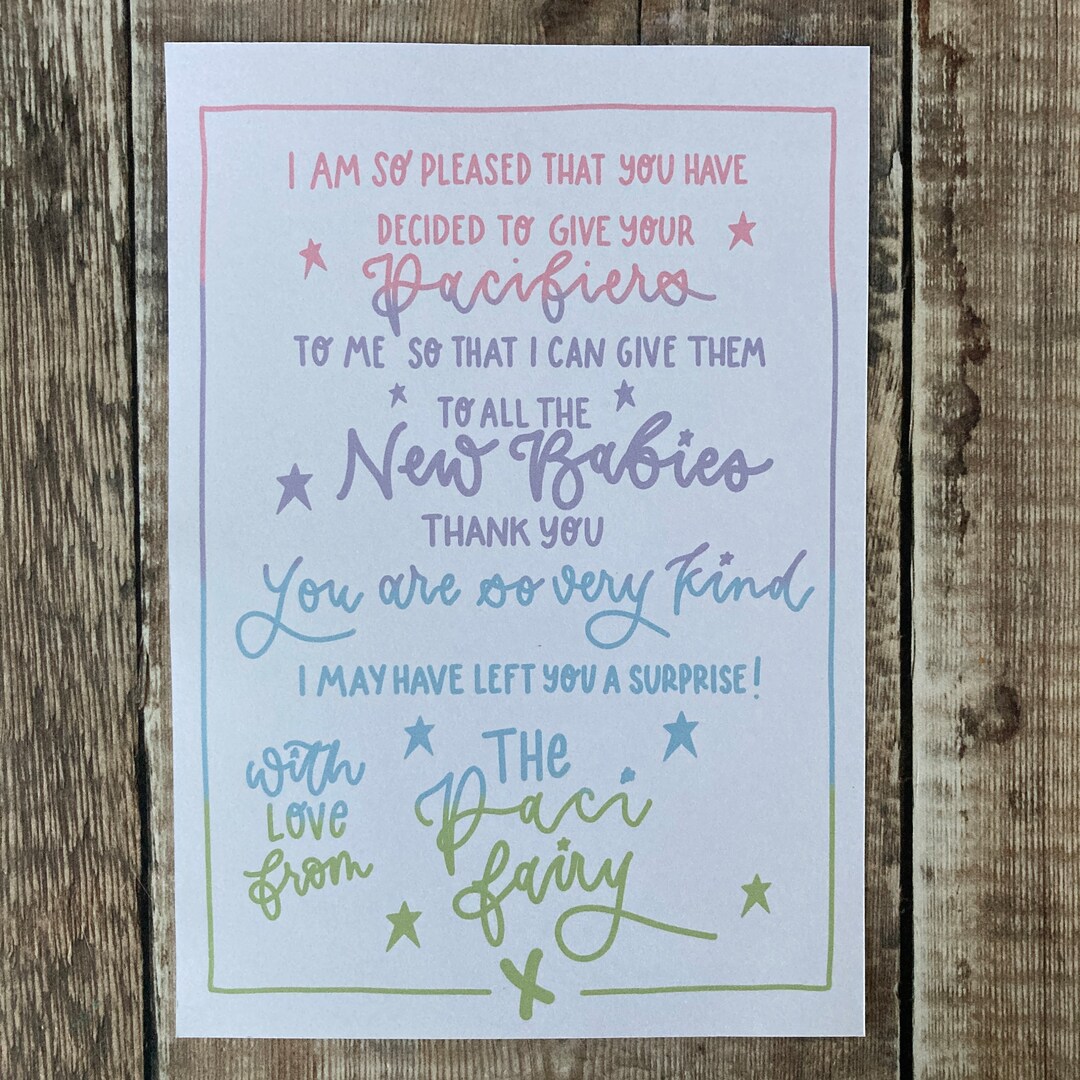 I AM SO PLEASED THAT YOU HAVE
DECIDED TO GIVE YOUR
Pacifiers
TO ME SO THAT I CAN GIVE THEM
TO ALL THE
New Babies
THANK YOU
You are so very kind
I MAY HAVE LEFT YOU A SURPRISE!
with
LOVE
from
THE
Paci
fairy
X